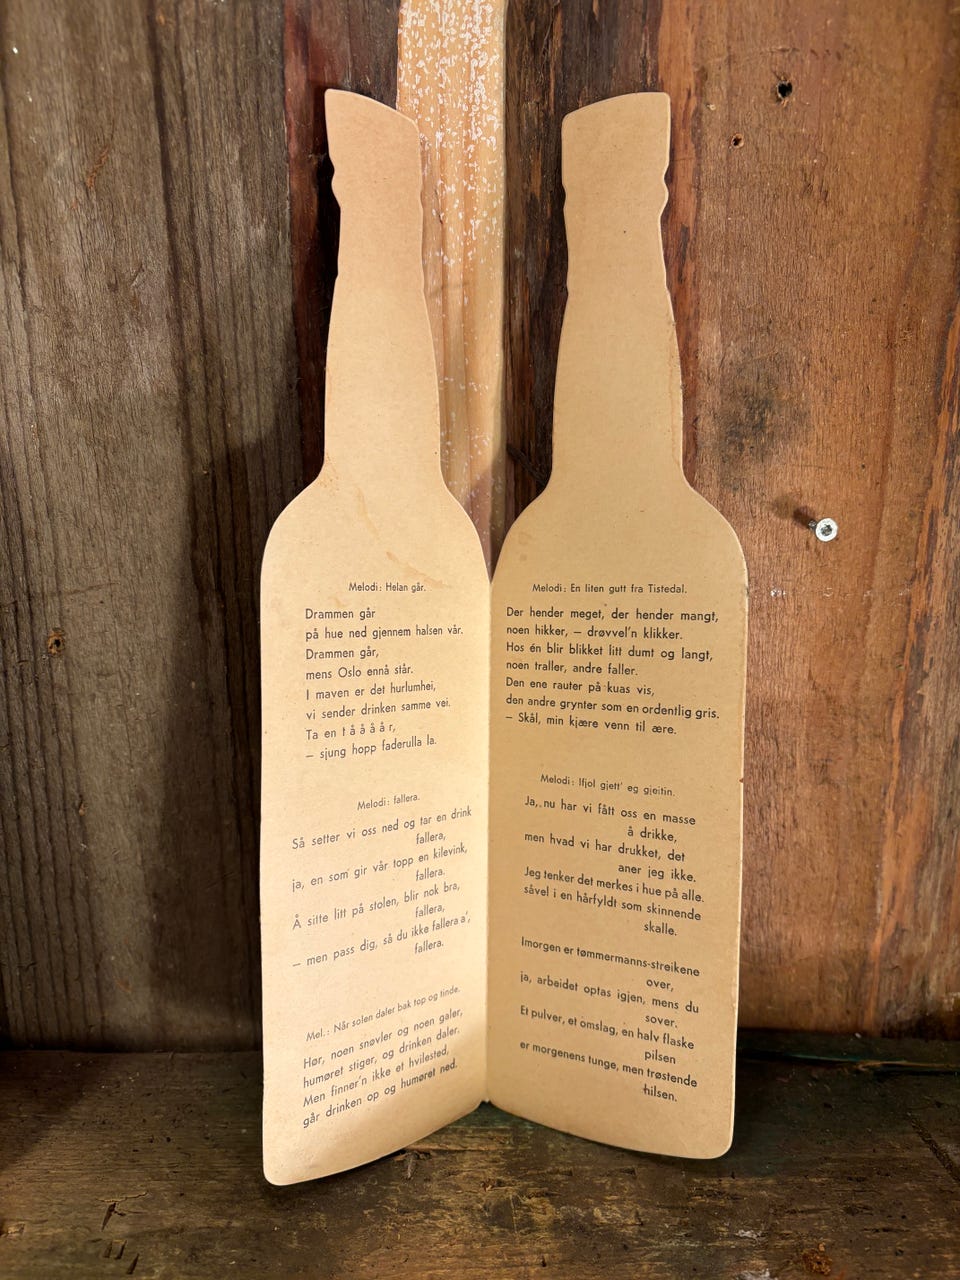 Melodi: Helan går.
Drammen går
på hue ned gjennem halsen vår.
Drammen går,
mens Oslo ennå står.
I maven er det hurlumhei,
vi sender drinken samme vei.
Ta en t å å å å r,
— sjung hopp faderulla la.
Melodi: fallera.
Så setter vi oss ned og tar en drink
fallera,
ja, en som gir vår topp en kilevink,
fallera.
Å sitte litt på stolen, blir nok bra,
fallera,
— men pass dig, så du ikke fallera a',
fallera.
Mel.: Når solen daler bak top og tinde.
Hør, noen snøvler og noen galer,
humøret stiger, og drinken daler.
Men finner'n ikke et hvilested,
går drinken op og humøret ned.
Melodi: En liten gutt fra Tistedal.
Der hender meget, der hender mangt,
noen hikker, — drøvvel'n klikker.
Hos én blir blikket litt dumt og langt,
noen traller, andre faller.
Den ene rauter på kuas vis,
den andre grynter som en ordentlig gris.
— Skål, min kjære venn til ære.
Melodi: Ifjol gjett' eg gjeitin.
Ja, nu har vi fått oss en masse
å drikke,
men hvad vi har drukket, det
aner jeg ikke.
Jeg tenker det merkes i hue på alle.
såvel i en hårfyldt som skinnende
skalle.
Imorgen er tømmermanns-streikene
over,
ja, arbeidet optas igjen, mens du
sover.
Et pulver, et omslag, en halv flaske
pilsen
er morgenens tunge, men trøstende
hilsen.